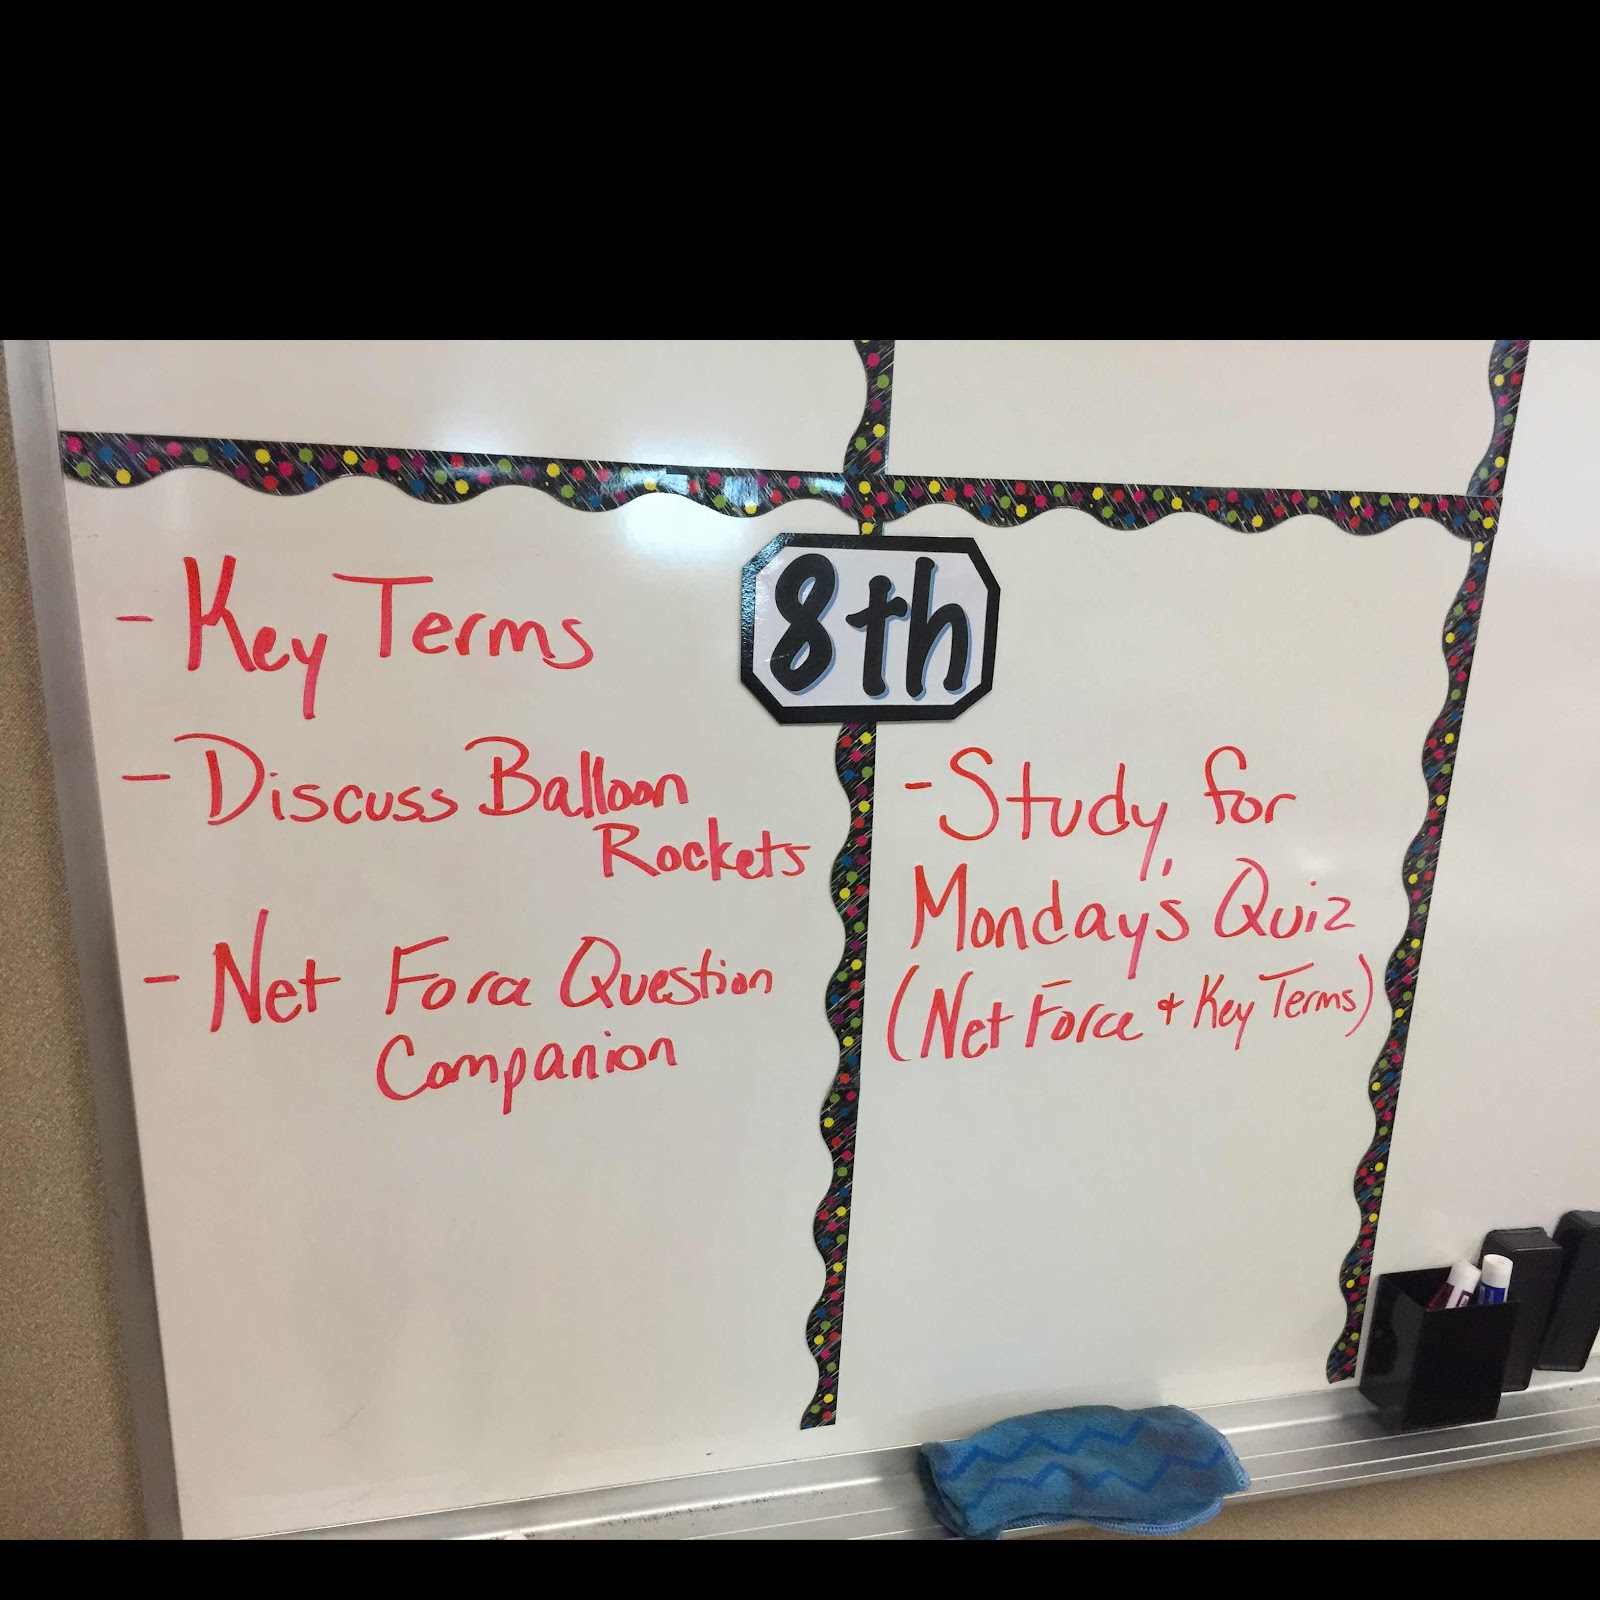 8th
- Key Terms
- Discuss Balloon
Rockets
- Net Force Question
Companion
- Study for
Monday's Quiz
(Net Force + Key Terms)